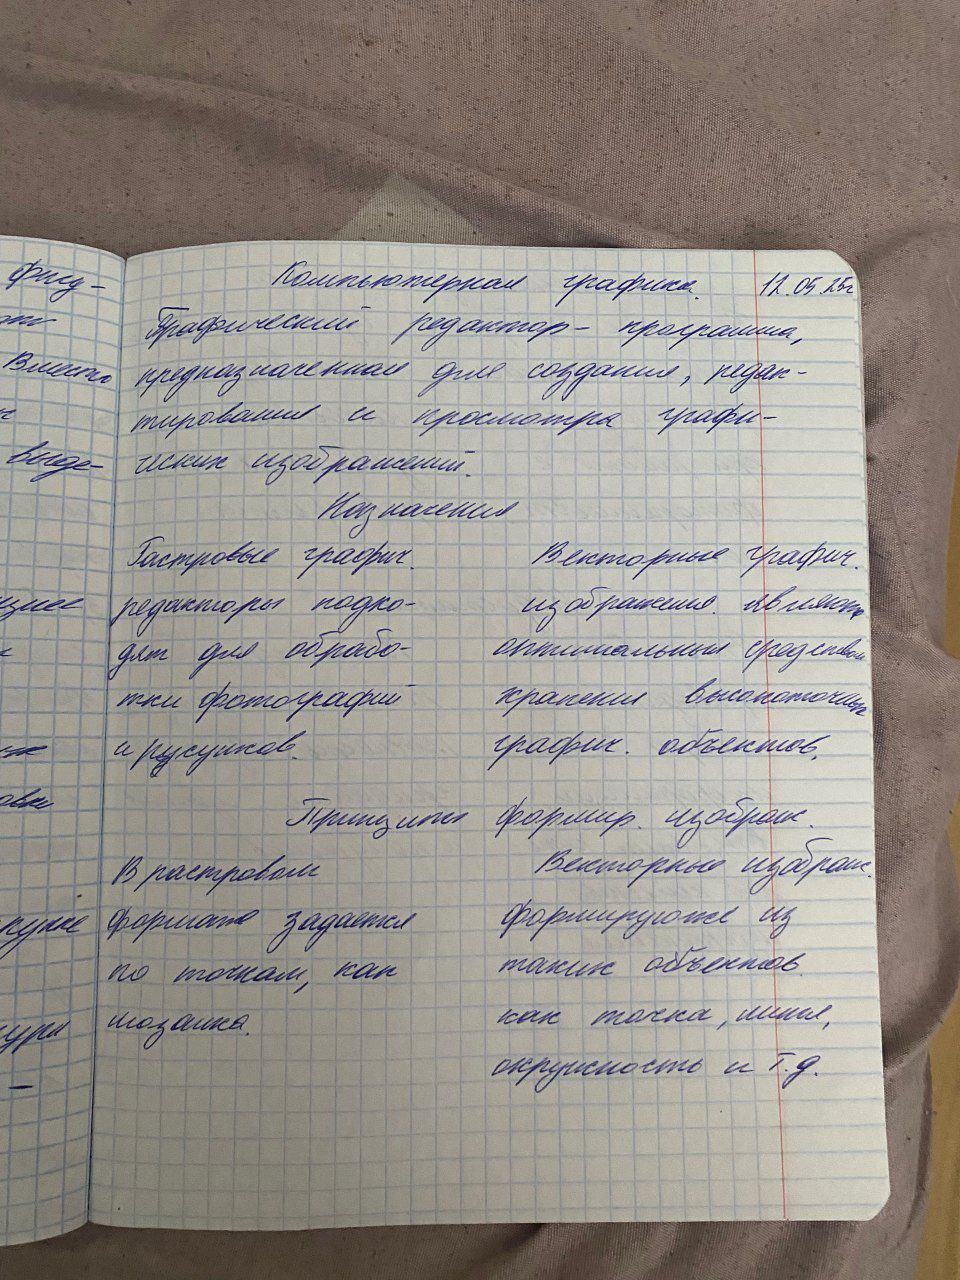 Компьютерная графика. 12.05.25г
Графический редактор - программа,
предназначенная для создания, редак-
тирования и просмотра графи-
ческих изображений.
Назначения
Растровые графич.
редакторы подхо-
дят для обрабо-
тки фотографий
и русунков.
Векторные график.
изображения. являют
оптимальным средством
хранения высокоточных
график. объектов.
Принципы формир. изображ.
В растровом
формате задается
по точкам, как
мозаика.
Векторные изображ.
формируются из
таких объектов
как точка, линия,
окружность и т.д.
фигу-
Вместо
выде-